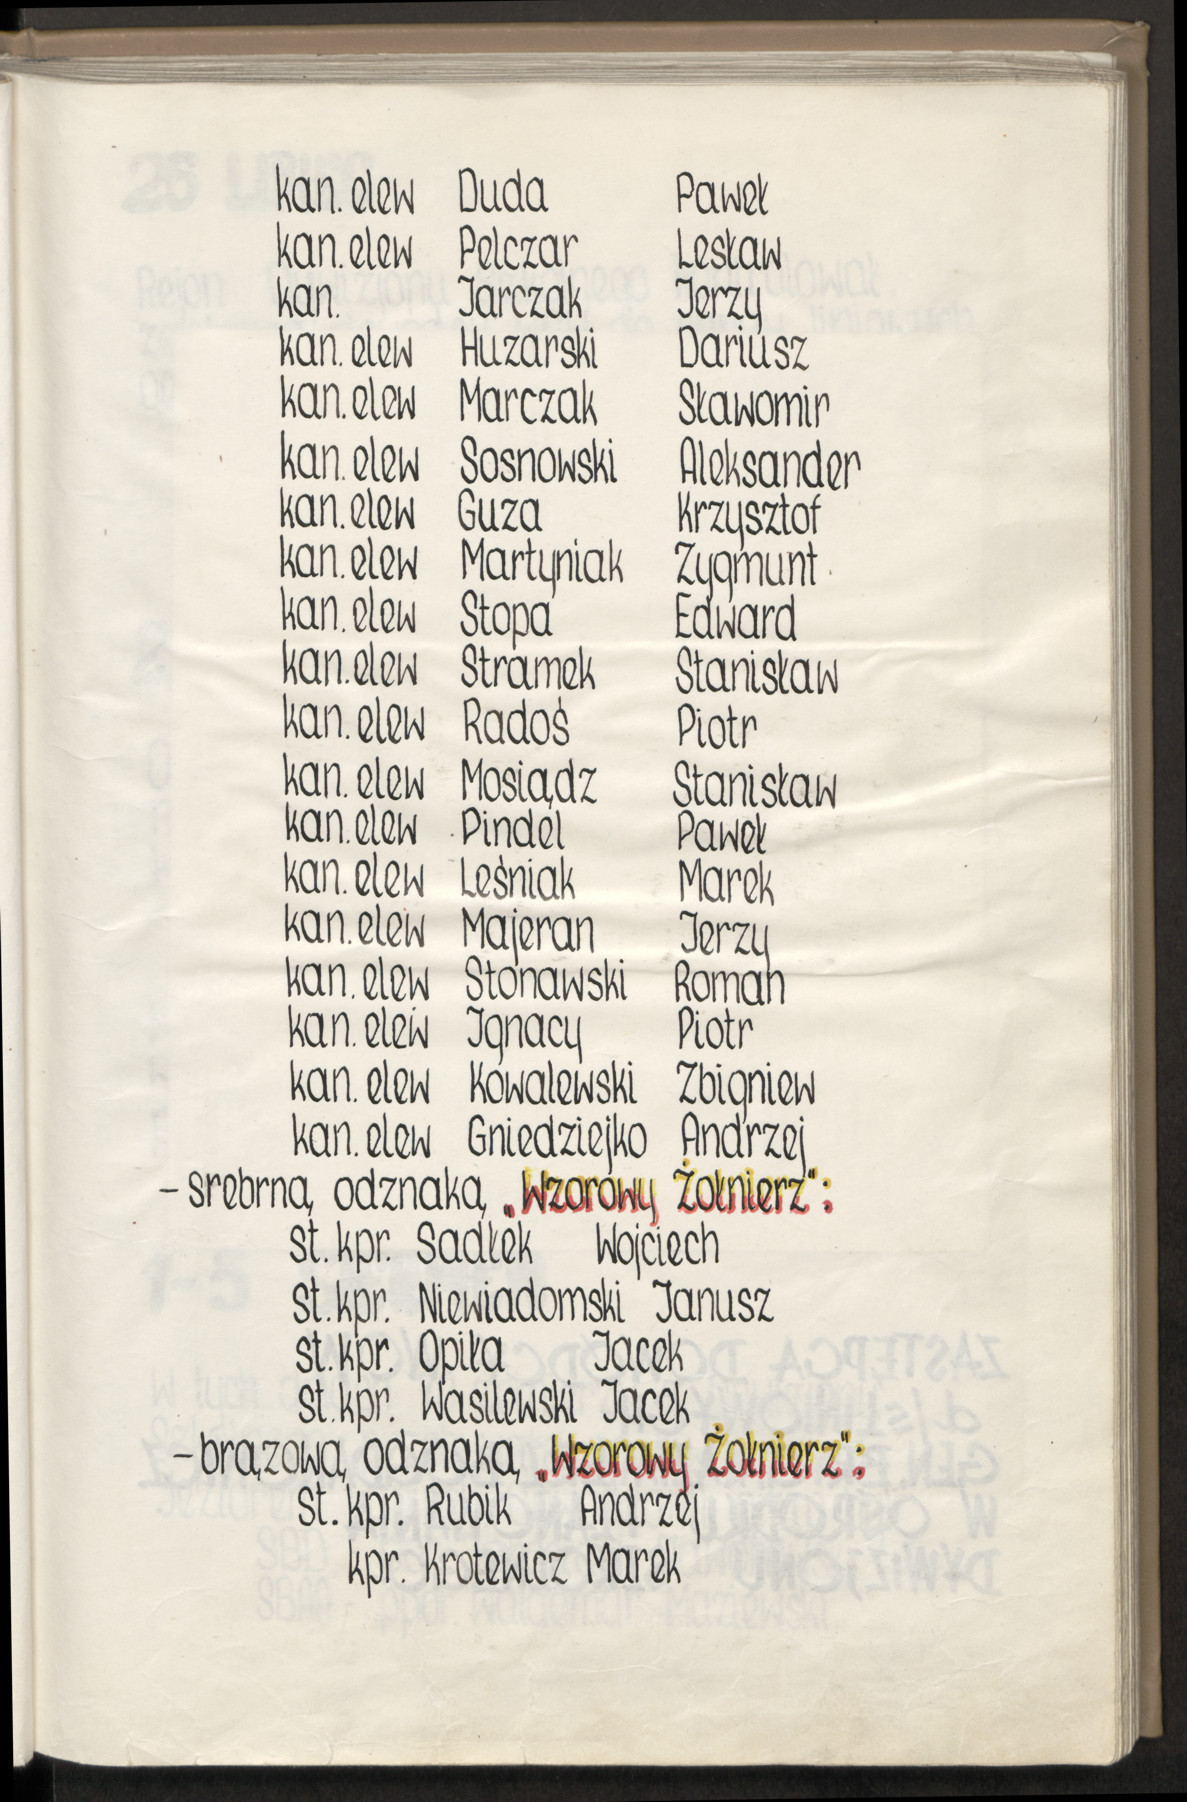 kan. elew Duda Paweł
kan. elew Pelczar Lesław
kan. Jarczak Jerzy
kan. elew Huzarski Dariusz
kan. elew Marczak Sławomir
kan. elew Sosnowski Aleksander
kan. elew Guza Krzysztof
kan. elew Martyniak Zygmunt
kan. elew Stopa Edward
kan. elew Stramek Stanisław
kan. elew Radoś Piotr
kan. elew Mosiądz Stanisław
kan. elew Pindel Paweł
kan. elew Leśniak Marek
kan. elew Majeran Jerzy
kan. elew Stonawski Roman
kan. elew Ignacy Piotr
kan. elew Kowalewski Zbigniew
kan. elew Gniedziejko Andrzej
– srebrną odznaką „Wzorowy Żołnierz":
st. kpr. Sadłek Wojciech
st. kpr. Niewiadomski Janusz
st. kpr. Opiła Jacek
st. kpr. Wasilewski Jacek
– brązową odznaką „Wzorowy Żołnierz":
st. kpr. Rubik Andrzej
kpr. Krotewicz Marek